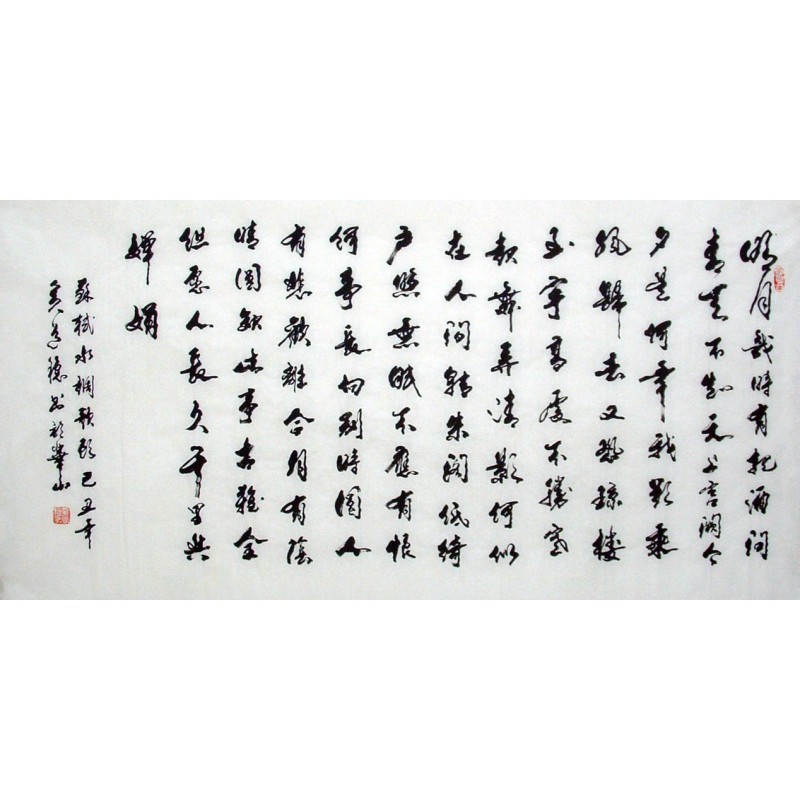 明月幾時有把酒问
青天不知天上宫阙今
夕是何年我欲乘
风归去又恐琼楼
玉宇高處不勝寒
起舞弄清影何似
在人间转朱阁低绮
户照無眠不應有恨
何事長向别時圆人
有悲歡離合月有陰
晴圆缺此事古難全
但愿人長久千里共
婵娟
蘇軾水调歌頭己丑年
德书於華山